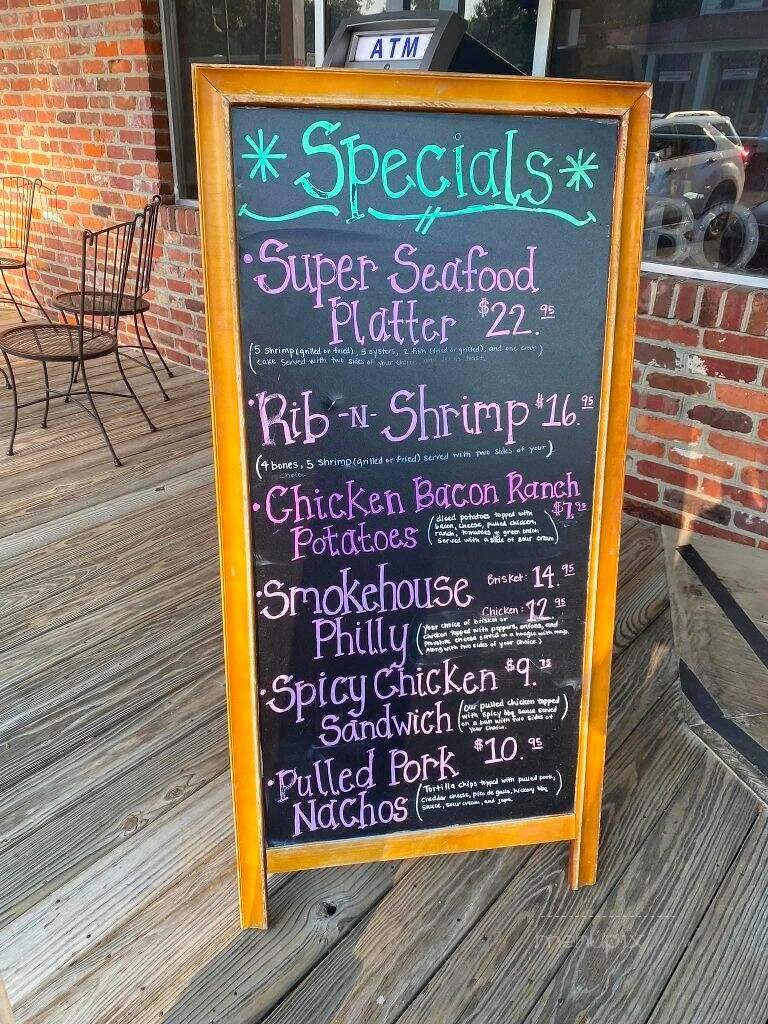 ATM
* Specials *
• Super Seafood
Platter $22.95
(5 shrimp (grilled or fried), 5 oysters, 2 fish (fried or grilled), and one crab
cake served with two sides of your choice
• Rib -N- Shrimp $16.95
(4 bones, 5 shrimp (grilled or fried) served with two sides of your
choice
• Chicken Bacon Ranch
Potatoes $7.95
(diced potatoes topped with
bacon, cheese, pulled chicken,
ranch, tomatoes + green onion
served with a side of sour cream)
• Smokehouse Brisket: 14.95
Philly Chicken: 12.95
(Your choice of brisket or
chicken topped with peppers, onions, and
provolone cheese served on a hoagie with mayo.
Along with two sides of your choice.)
• Spicy Chicken $9.
Sandwich (our pulled chicken topped
with spicy bbq sauce served
on a bun with two sides of
your choice.
• Pulled Pork $10.95
Nachos (Tortilla chips topped with pulled pork,
cheddar cheese, pico de gallo, hickory bbq
sauce, sour cream, and japs.
menupix